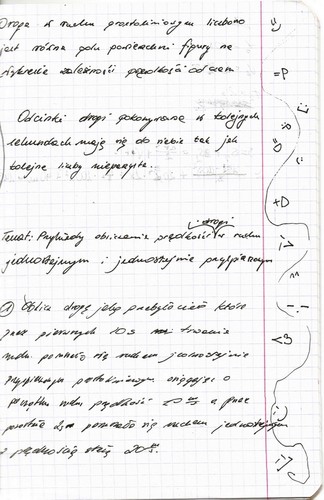 Droga w ruchu prostoliniowym liczbowo
jest równa polu powierzchni figury na
wykresie zależności prędkości od czasu
Odcinki drogi pokonywane w kolejnych
sekundach mają się do siebie tak jak
kolejne liczby nieparzyste.
drogi
Temat: Przykłady obliczania prędkości w ruchu
jednostajnym i jednostajnie przyspieszonym
① Oblicz drogę jaką przebyło ciało które
przez pierwszych 10 s trwania
ruchu poruszało się ruchem jednostajnie
przyspieszonym prostoliniowym osiągając
początku ruchu prędkość 20 m/s a przez
poruszało się ruchem jednostajnym
z prędkością stałą 20 m/s.
:)
=P
:)
:P
=D
:)
+D
:)
=
!
<3
:)
:)